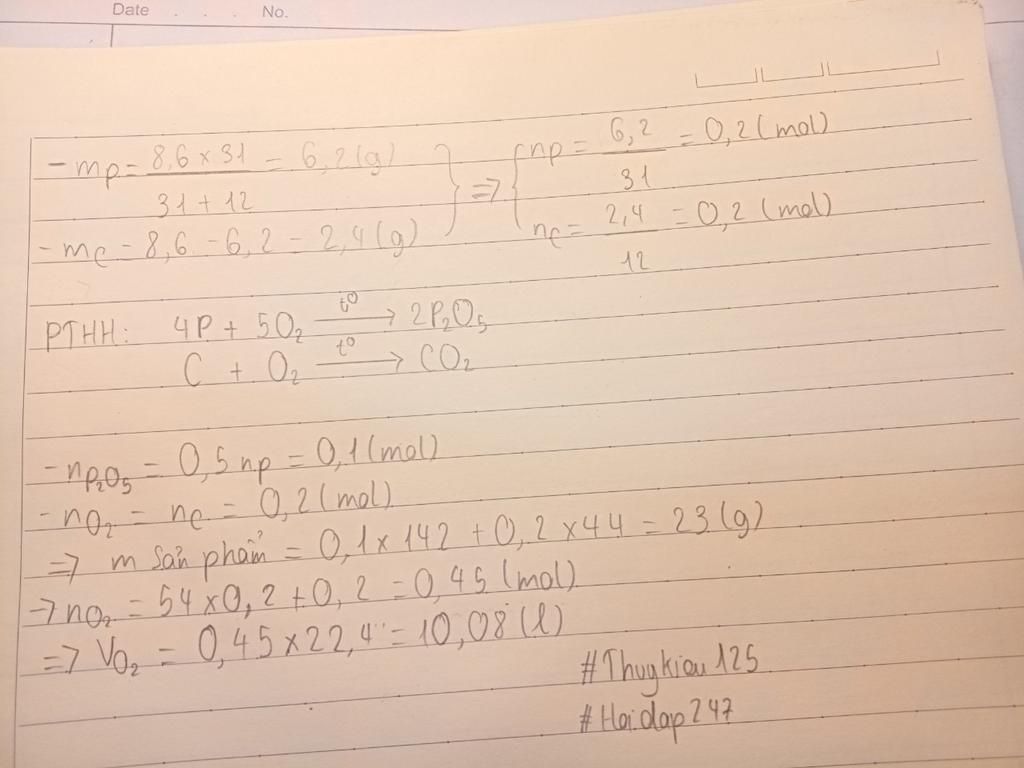 Date . . . No.
- mp = 8,6 x 31 / 31 + 12 = 6,2 (g) } => { np = 6,2 / 31 = 0,2 (mol)
- mc = 8,6 - 6,2 = 2,4 (g) nc = 2,4 / 12 = 0,2 (mol)
PTHH: 4P + 5O₂ —t⁰→ 2P₂O₅
C + O₂ —t⁰→ CO₂
- nP₂O₅ = 0,5 np = 0,1 (mol)
- nO₂ = nc = 0,2 (mol)
=> m sản phẩm = 0,1 x 142 + 0,2 x 44 = 23 (g)
-> nO₂ = 54 x 0,2 + 0,2 = 0,45 (mol)
=> VO₂ = 0,45 x 22,4 = 10,08 (l)
#Thuykieu125
#Hoidap247